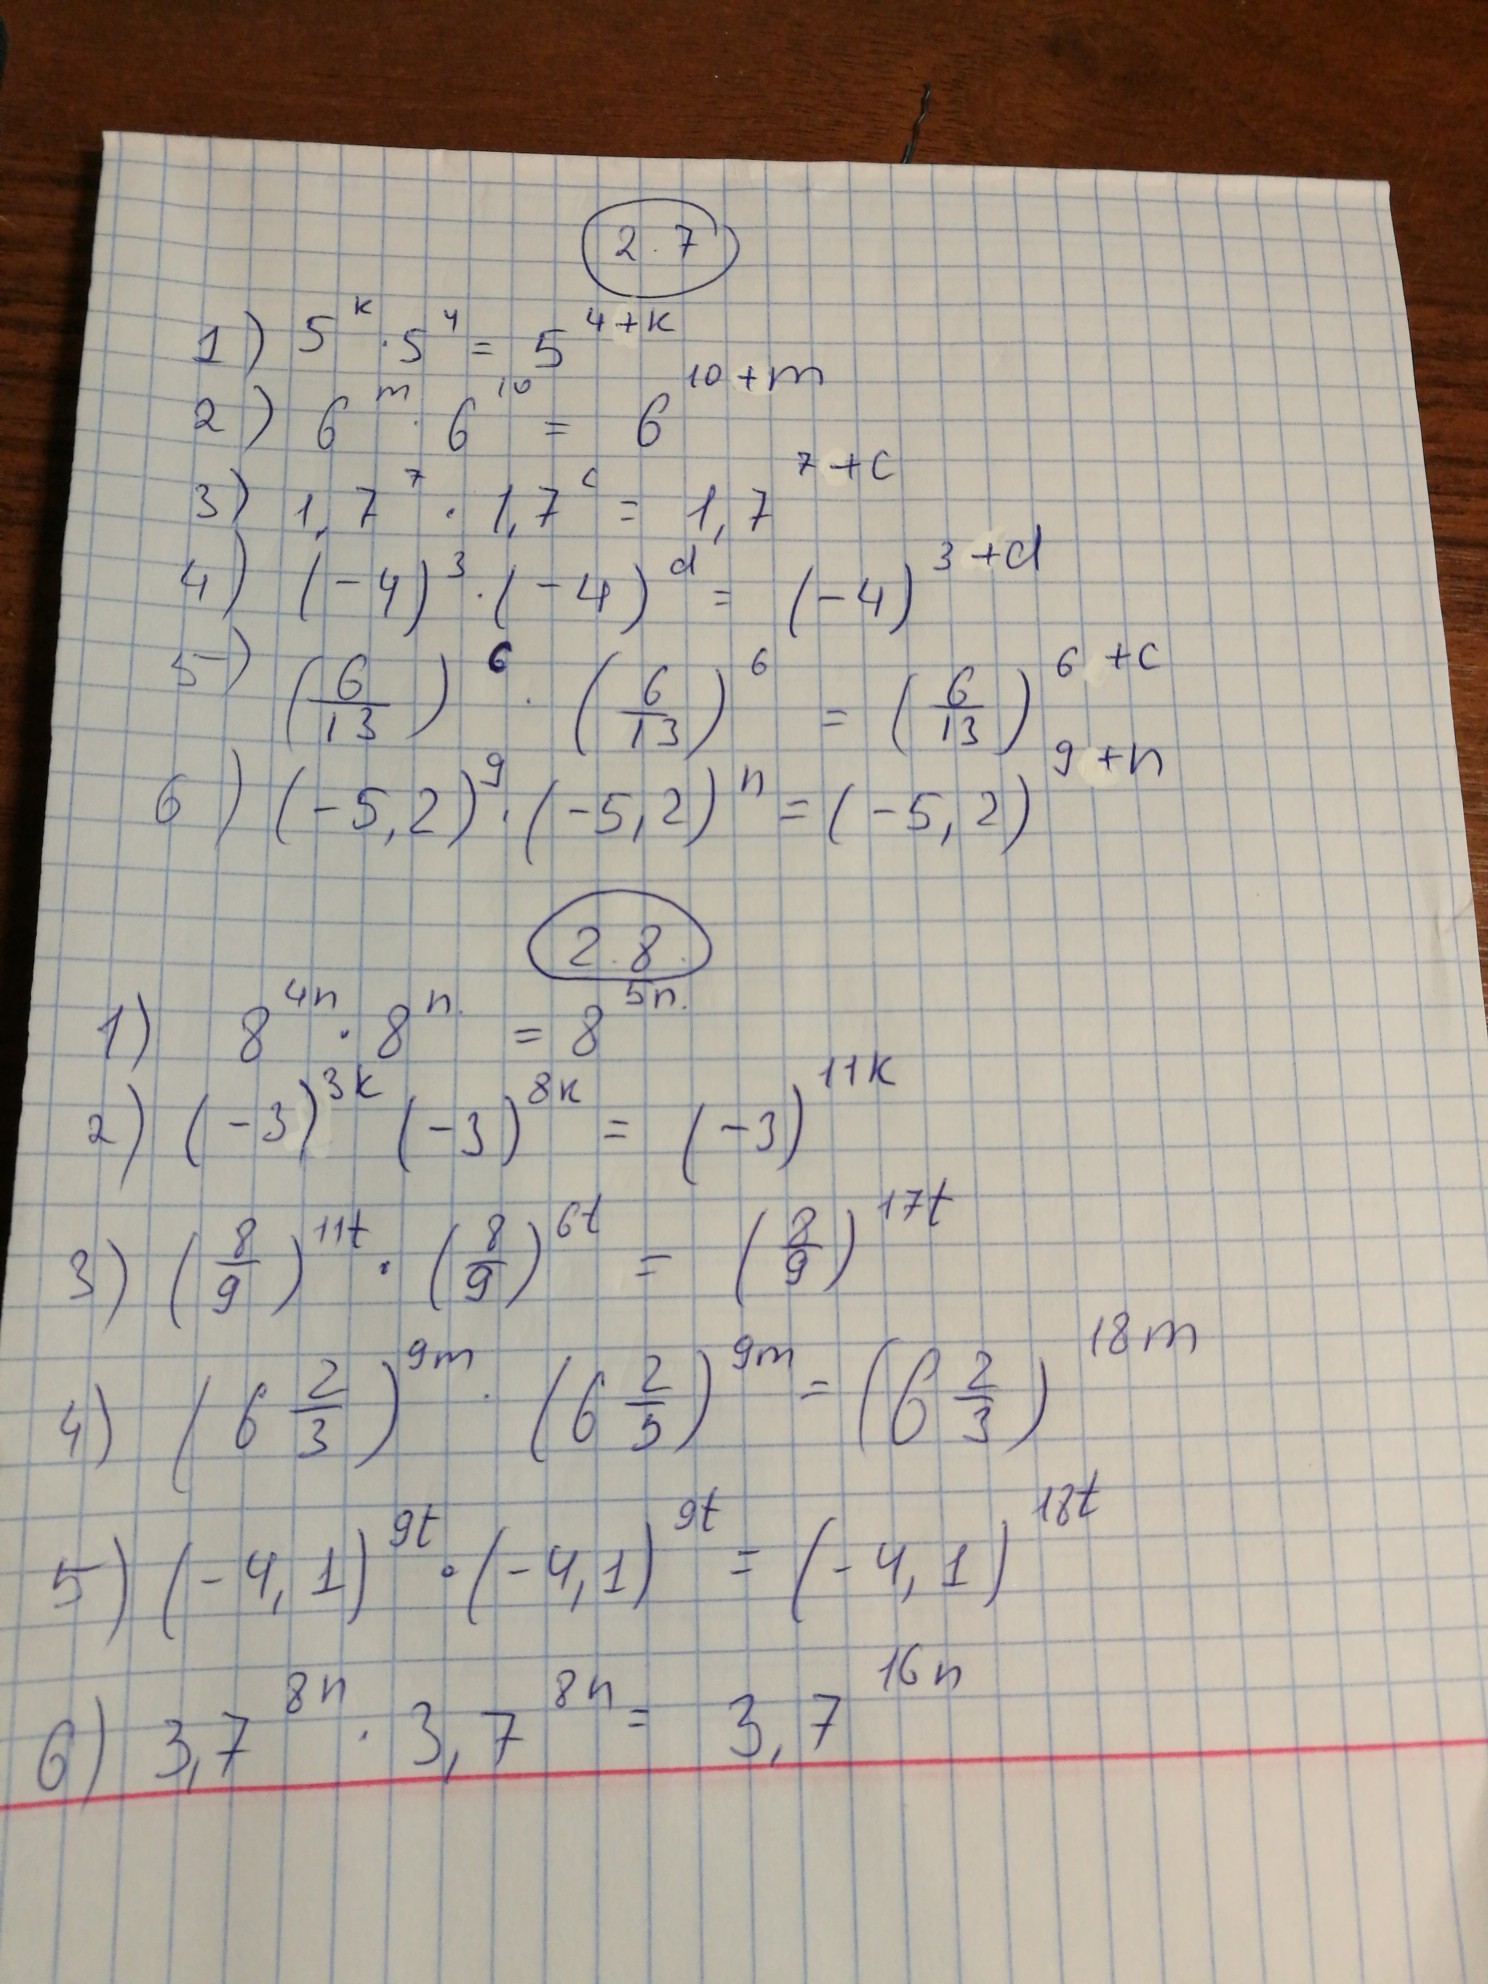 2.7
1) 5^k · 5^4 = 5^{4+k}
2) 6^m · 6^{10} = 6^{10+m}
3) 1,7^7 · 1,7^c = 1,7^{7+c}
4) (-4)^3 · (-4)^d = (-4)^{3+d}
5) (6/13)^6 · (6/13)^6 = (6/13)^{6+c}
6) (-5,2)^9 · (-5,2)^n = (-5,2)^{9+n}
2.8.
1) 8^{4n} · 8^n. = 8^{5n}.
2) (-3)^{3k} (-3)^{8k} = (-3)^{11k}
3) (8/9)^{11t} · (8/9)^{6t} = (8/9)^{17t}
4) (6 2/3)^{9m} · (6 2/3)^{9m} = (6 2/3)^{18m}
5) (-4,1)^{9t} · (-4,1)^{9t} = (-4,1)^{18t}
6) 3,7^{8n} · 3,7^{8n} = 3,7^{16n}